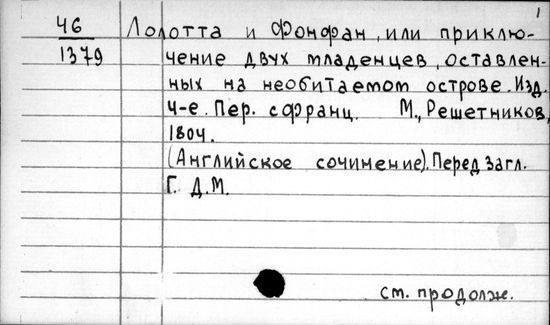 1
46
1379
Лолотта и Фонфан, или приклю-
чение двух младенцев, оставлен-
ных на необитаемом острове. Изд.
4-е. Пер. с франц. М., Решетников,
1804.
(Английское сочинение). Перед загл.
Г. Д. М.
см. продолж.